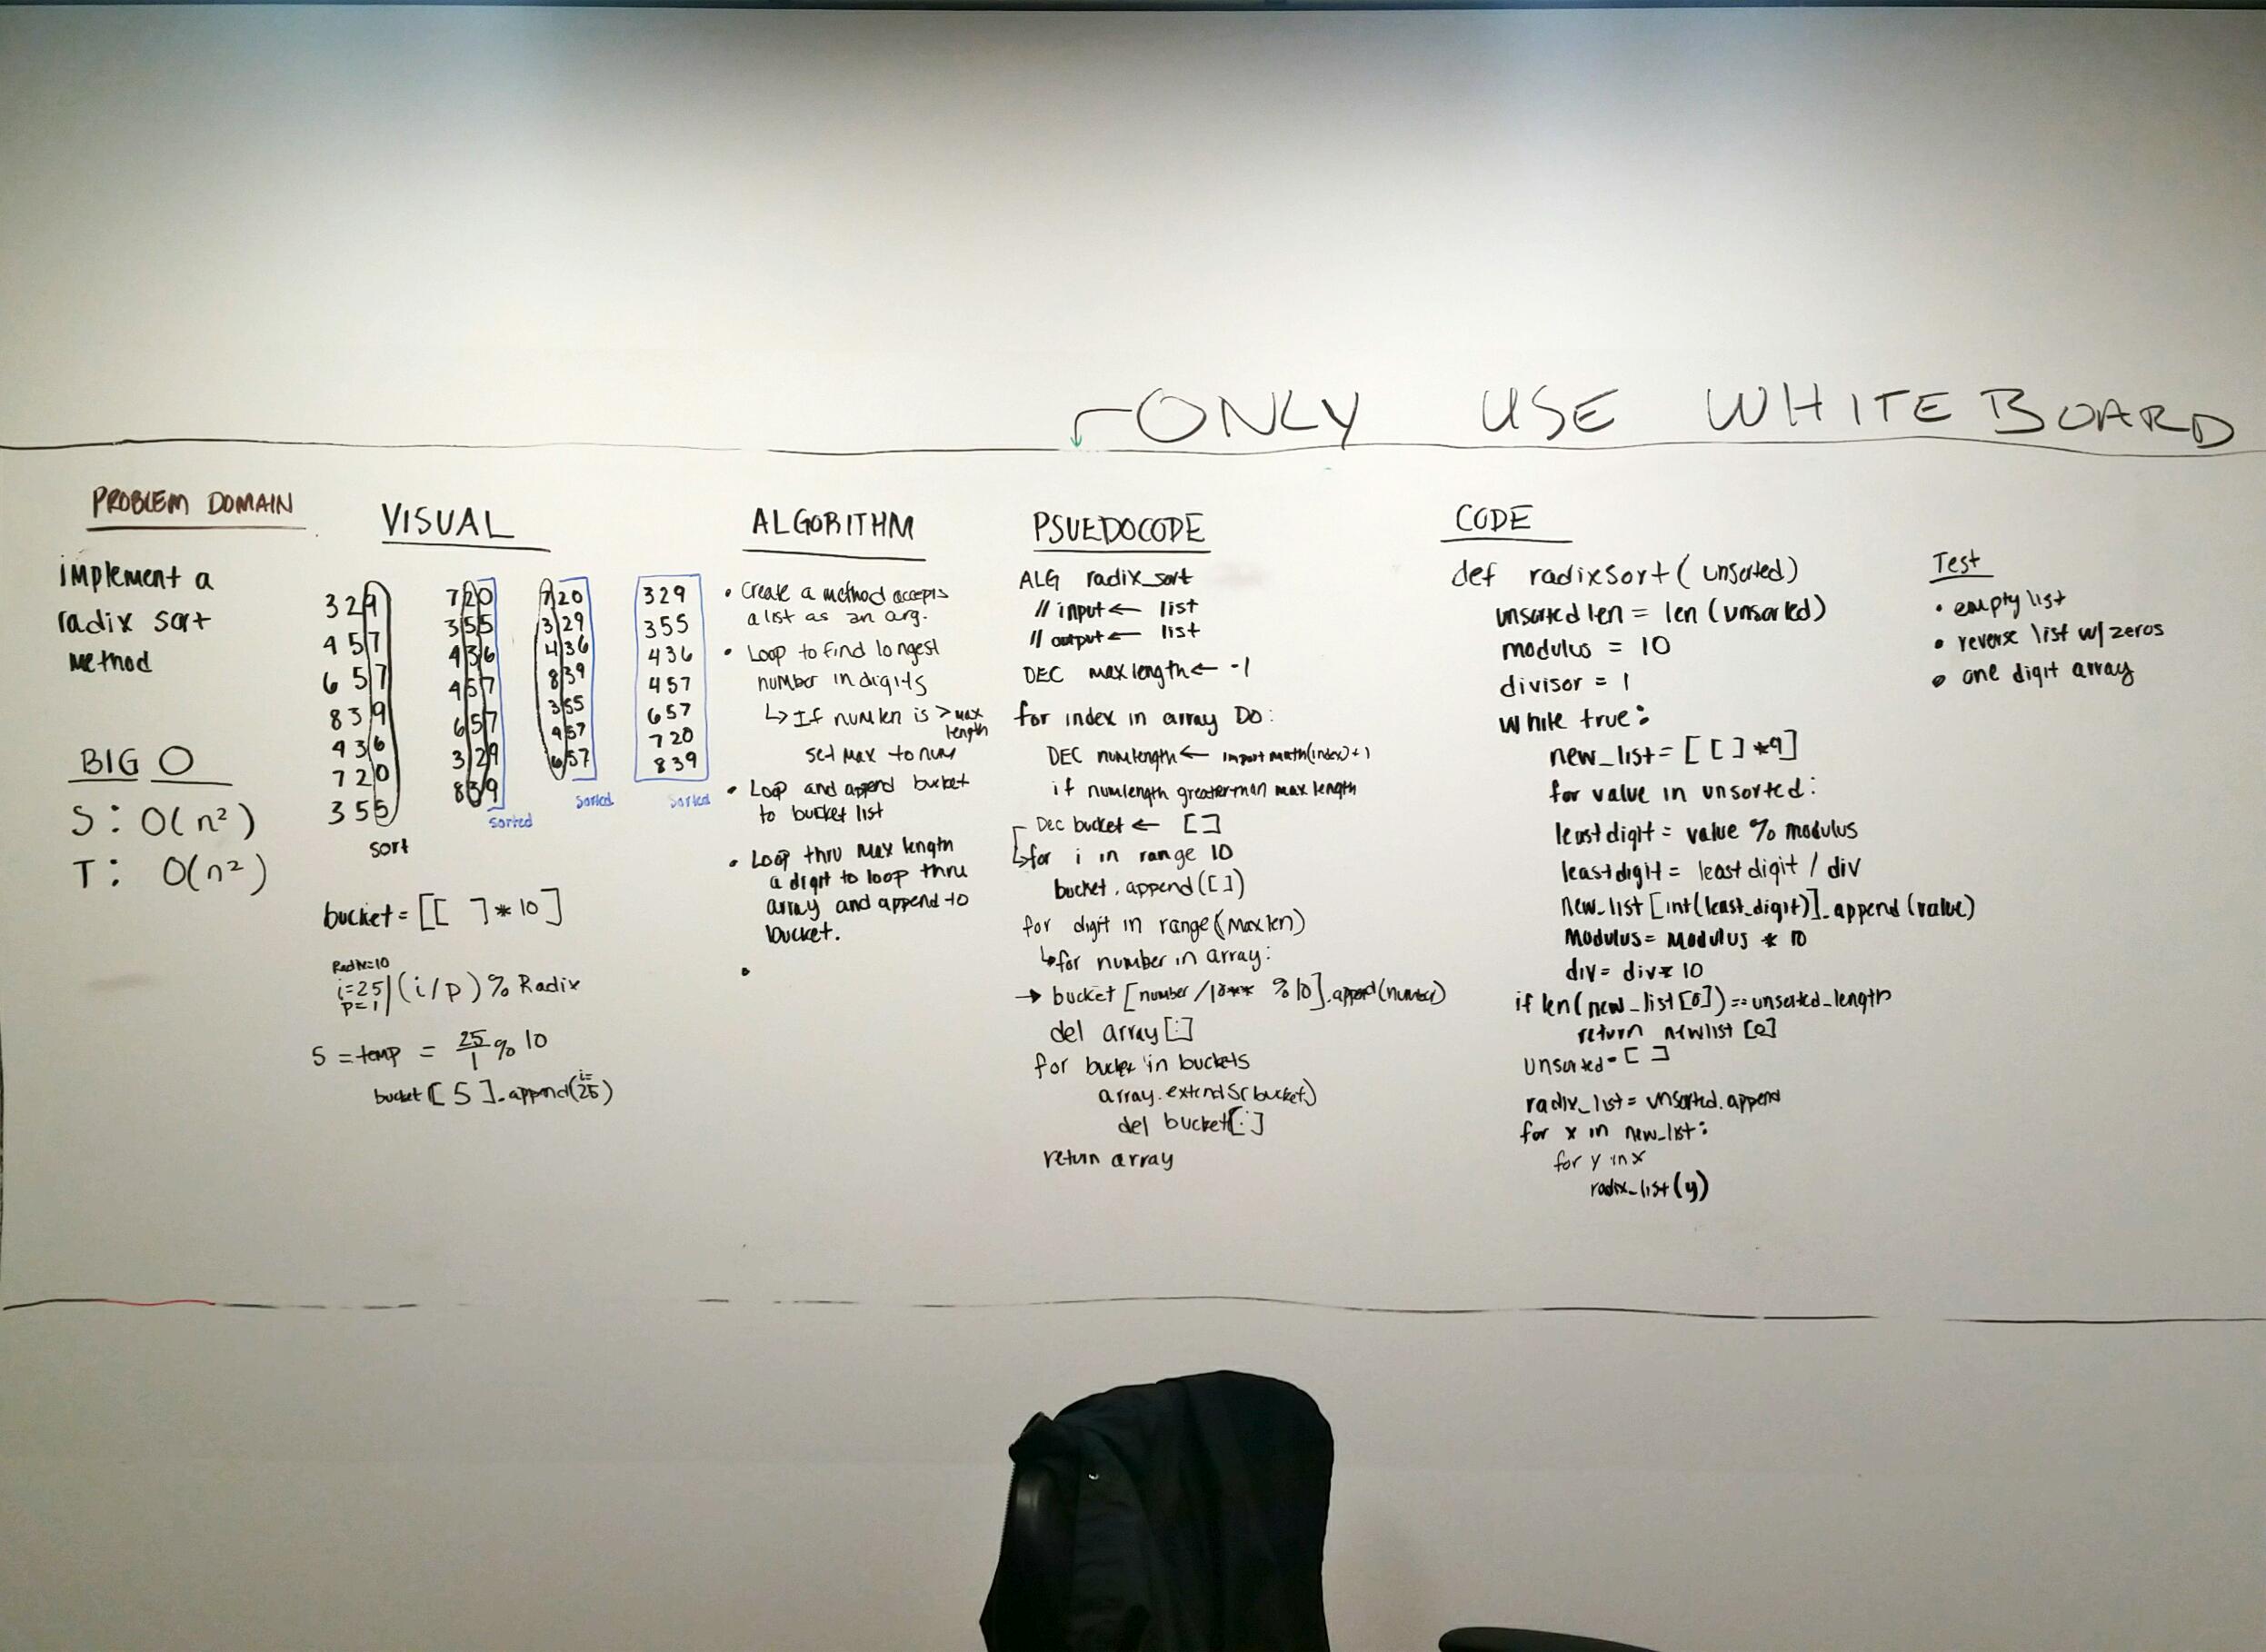 ONLY USE WHITE BOARD
PROBLEM DOMAIN
implement a
radix sort
method
BIG O
S: O(n²)
T: O(n²)
VISUAL
329
457
657
839
436
720
355
sort
720
355
436
457
657
329
839
sorted
720
329
436
839
355
457
657
sorted
329
355
436
457
657
720
839
sorted
bucket = [[ ] * 10]
Radix=10
i=25
p=1
(i/p) % Radix
5 = temp = 25/1 % 10
bucket [ 5 ].append(25)
i=
ALGORITHM
• Create a method accepts
a list as an arg.
• Loop to find longest
number in digits
↳ If numlen is > max
length
set max to num
• Loop and append bucket
to bucket list
• Loop thru max length
a digit to loop thru
array and append to
bucket.
•
PSUEDOCODE
ALG radix_sort
// input ← list
// output ← list
DEC max length ← -1
for index in array DO:
DEC numlength ← import math(index)+1
if numlength greaterthan max length
Dec bucket ← []
↳for i in range 10
bucket.append([])
for digit in range(maxlen)
↳for number in array:
→ bucket [number /10** %10].append(number)
del array[:]
for bucket in buckets
array.extends(bucket)
del bucket[:]
return array
CODE
def radixsort( unsorted)
unsorted len = len (unsorted)
modulus = 10
divisor = 1
while true:
new_list = [ [ ] *9]
for value in unsorted:
least digit = value % modulus
least digit = least digit / div
new_list [int(least_digit)].append(value)
Modulus = Modulus * 10
div = div * 10
if len(new_list[0]) == unsorted_length
return newlist [0]
unsorted = [ ]
radix_list = unsorted.append
for x in new_list:
for y in x
radix_list(y)
Test
• empty list
• reverse list w/ zeros
• one digit array